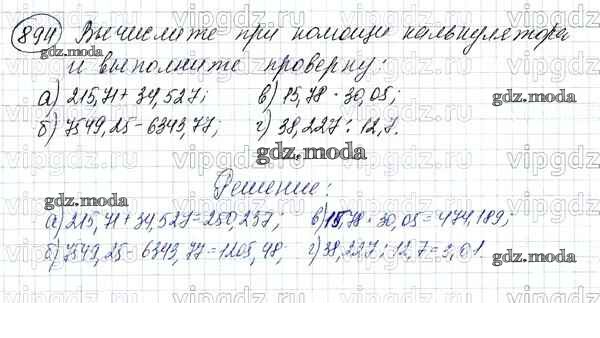 894 Вычислите при помощи калькулятора
и выполните проверку:
а) 215,71 + 34,527; в) 15,78 · 30,05;
б) 7549,25 - 6343,77; г) 38,227 : 12,7.
Решение:
а) 215,71 + 34,527 = 250,237; в) 15,78 · 30,05 = 474,189;
б) 7549,25 - 6343,77 = 1205,48; г) 38,227 : 12,7 = 3,01.
gdz.moda
vipgdz.ru